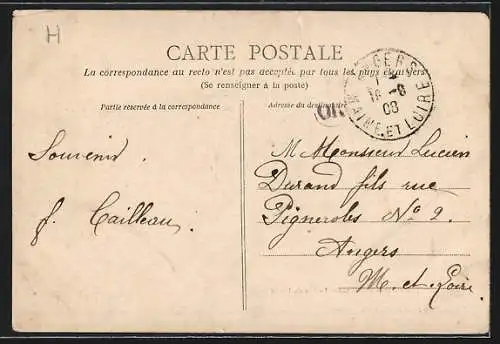 H
CARTE POSTALE
La correspondance au recto n'est pas acceptée par tous les pays étrangers
(Se renseigner à la poste)
Partie réservée à la correspondance
Adresse du destinataire
ANGERS
18 -8
08
MAINE-ET-LOIRE
OR
Souvenir.
f. Cailleau.
M Monsieur Lucien
Durand fils rue
Pigneroles No 2.
Angers
M.-et-Loire.